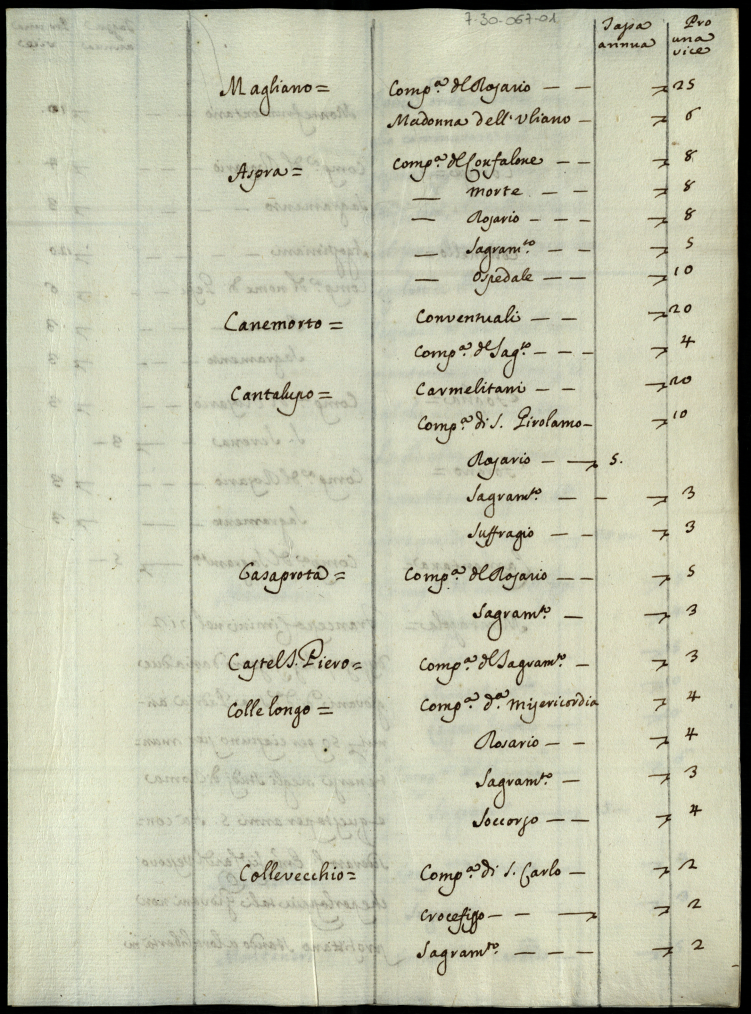 7-30-067-01
Tassa annua
Pro una vice
Magliano = Comp.ª del Rosario — — 25
Madonna dell'Uliano — 6
Aspra = Comp.ª del Confalone — — 8
— Morte — — 8
— Rosario — — 8
— Sagram.to — — 5
— Ospedale — — 10
Canemorto = Conventuali — — 20
Comp.ª del Sag.to — — 4
Cantalupo = Carmelitani — — 20
Comp.ª di S. Girolamo — 10
Rosario — — 5.
Sagram.to — — 3
Suffragio — — 3
Casaprota = Comp.ª del Rosario — — 5
Sagram.to — 3
Castel S. Piero = Comp.ª del Sagram.to — 3
Colle longo = Comp.ª d.ª Misericordia 4
Rosario — — 4
Sagram.to — 3
Soccorso — — 4
Collevecchio = Comp.ª di S. Carlo — 2
Crocefisso — — — 2
Sagram.to — — — 2